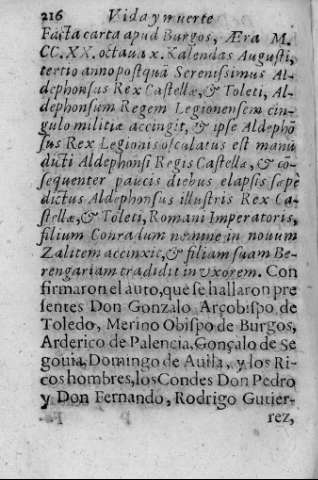 216 Vida y muerte
Facta carta apud Burgos, Æra M.
CC.XX. octaua x. Kalendas Augusti,
tertio anno postquā Serenissimus Al-
dephonsus Rex Castellæ, & Toleti, Al-
dephonsum Regem Legionensem cin-
gulo militiæ accingit, & ipse Aldephō
sus Rex Legionis osculatus est manū
dicti Aldephonsi Regis Castellæ, & cō-
sequenter paucis diebus elapsis sæpè
dictus Aldephonsus illustris Rex Ca-
stellæ, & Toleti, Romani Imperatoris,
filium Conradum nomine in nouum
Zalitem accinxit, & filiam suam Be-
rengariam tradidit in vxorem. Con
firmaron el auto, que se hallaron pre
sentes Don Gonzalo Arçobispo de
Toledo, Merino Obispo de Burgos,
Arderico de Palencia, Gonçalo de Se
gouia, Domingo de Auila, y los Ri-
cos hombres, los Condes Don Pedro
y Don Fernando, Rodrigo Gutier-
rez,